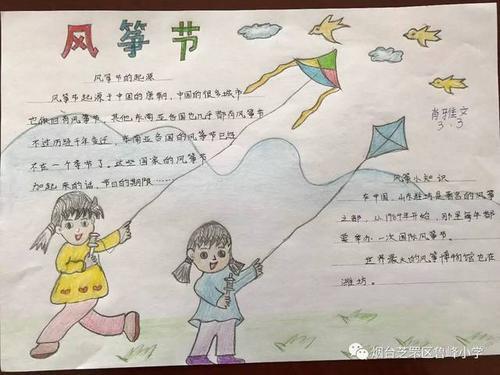 风筝节
风筝节的起源
风筝节起源于中国的唐朝,中国的很多城市
也做旧有风筝节,其他东南亚各国也几乎都有风筝节
不过历经千年变迁,东南亚各国的风筝节已经
不在一个季节了。这些国家的风筝节
加起来的话,节日的期限……
肖雅文
3.3
风筝小知识
在中国,山东潍坊是著名的风筝
之都,从1984年开始,那里每年都
要举办一次国际风筝节。
世界最大的风筝博物馆也在
潍坊。
烟台芝罘区鲁峰小学